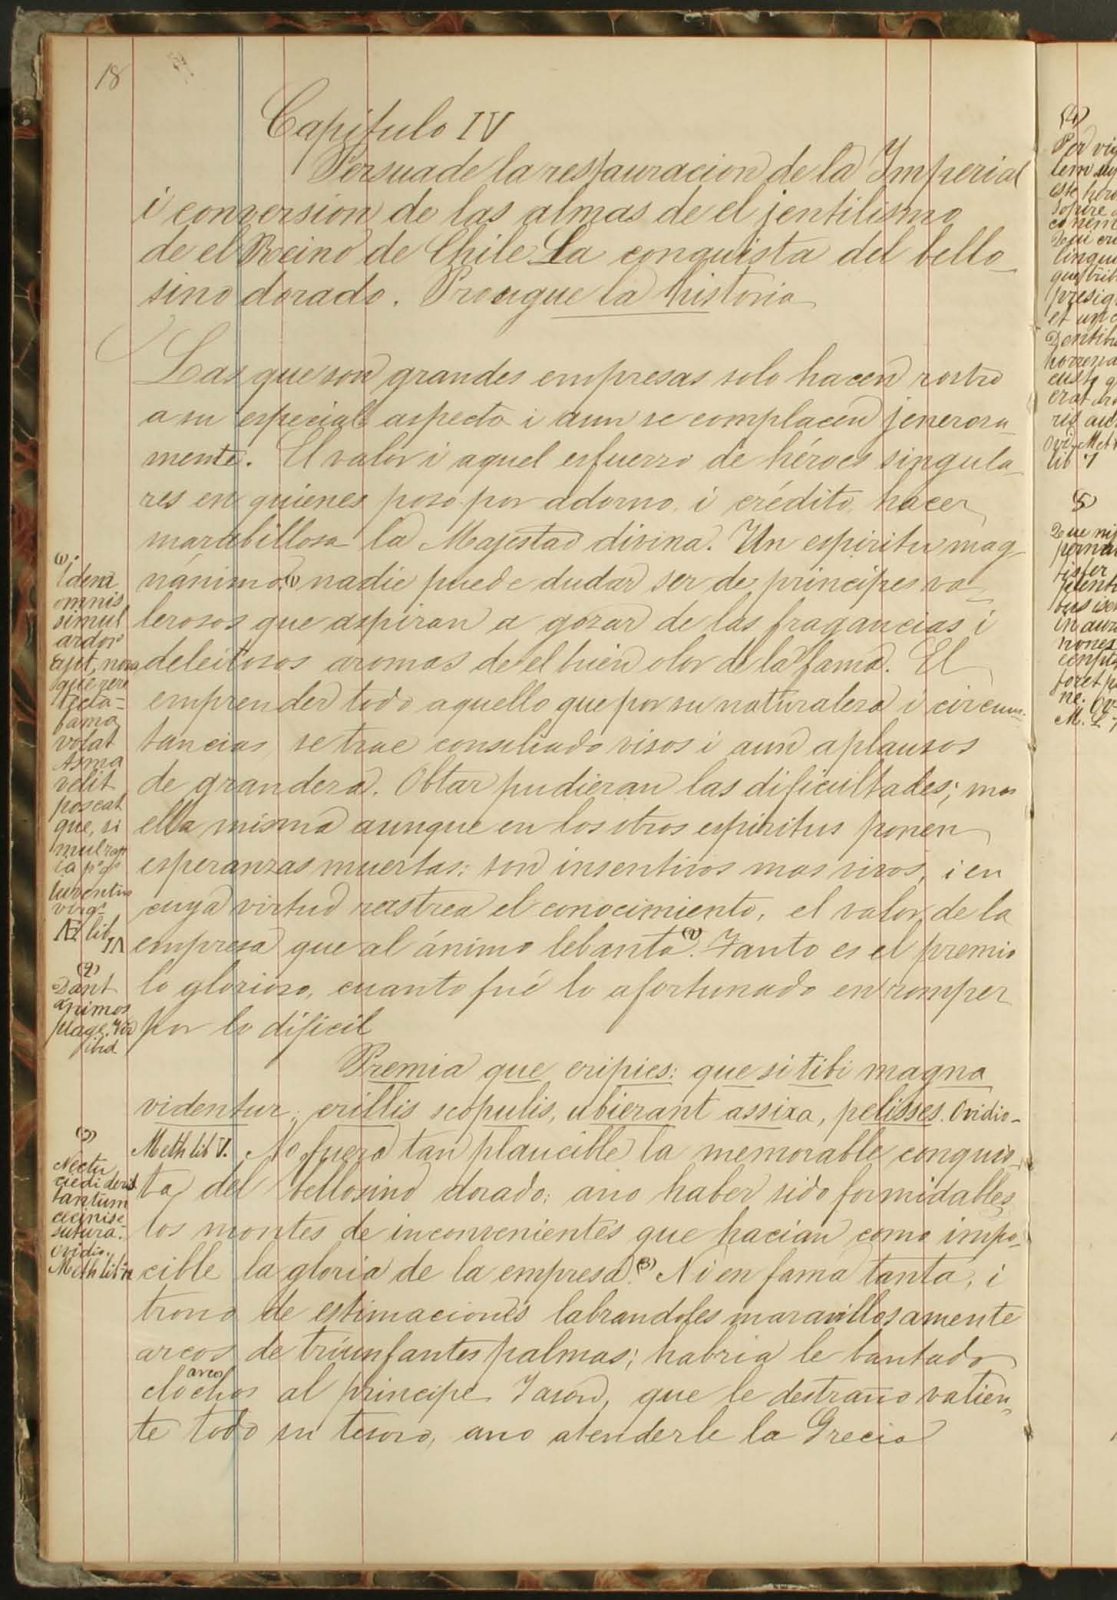 18
Capitulo IV
Persuade la restauracion de la Imperial
i conversion de las almas de el jentilismo
de el Reino de Chile La conquista del bello
sino dorado. Prosigue la historia
Las que son grandes empresas solo hacen rostro
a su especial aspecto i aun se complacen jenerosa
mente. El valor i aquel esfuerzo de héroes singula
res en quienes poso por adorno, i crédito, hacer
marabillosa la Majestad divina. Un espiritu mag
nánimo (1) nadie puede dudar ser de principes va
lerosos que aspiran a gozar de las fragancias i
deleitosos aromas de el bien olor de la fama. El
emprender todo aquello que por su naturaleza i circuns
tancias se trae consiliado visos i aun aplausos
de grandeza. Obtar pudieran las dificultades; mas
ella misma aunque en los otros espiritus ponen
esperanzas muertas: son insentivos mas vivos, i en
cuya virtud rastrea el conocimiento, el valor de la
empresa que al ánimo lebanto (2). Tanto es el premio
lo glorioso, cuanto fué lo afortunado en romper
por lo dificil
Premia que eripies: que si tibi magna
videntur, erillis scopulis, ubierant assixa, pelisses. Ovidio
Meth lib V. No fuera tan plaucible la memorable conquis
ta del bellosino dorado; ano haber sido formidables
los montes de inconvenientes que hacian como impo
cible la gloria de la empresa (3) Ni en fama tanta, i
trono de estimaciones labrandoles maravillosamente
arcos de triunfantes palmas; habria le bantado
al principe Jason, que le destrano valien
te todo su tesoro, ano atenderle la Grecia
(1)
Idem
omnis
simul
ardor
que vera
fama
volat
velit
poscat
que, si
Æ lib
IV
(2)
Dant
animos
plage.
ibid
(3)
tantum
Ovidio.
Meth lib 7
(4)
lib 7
(5)